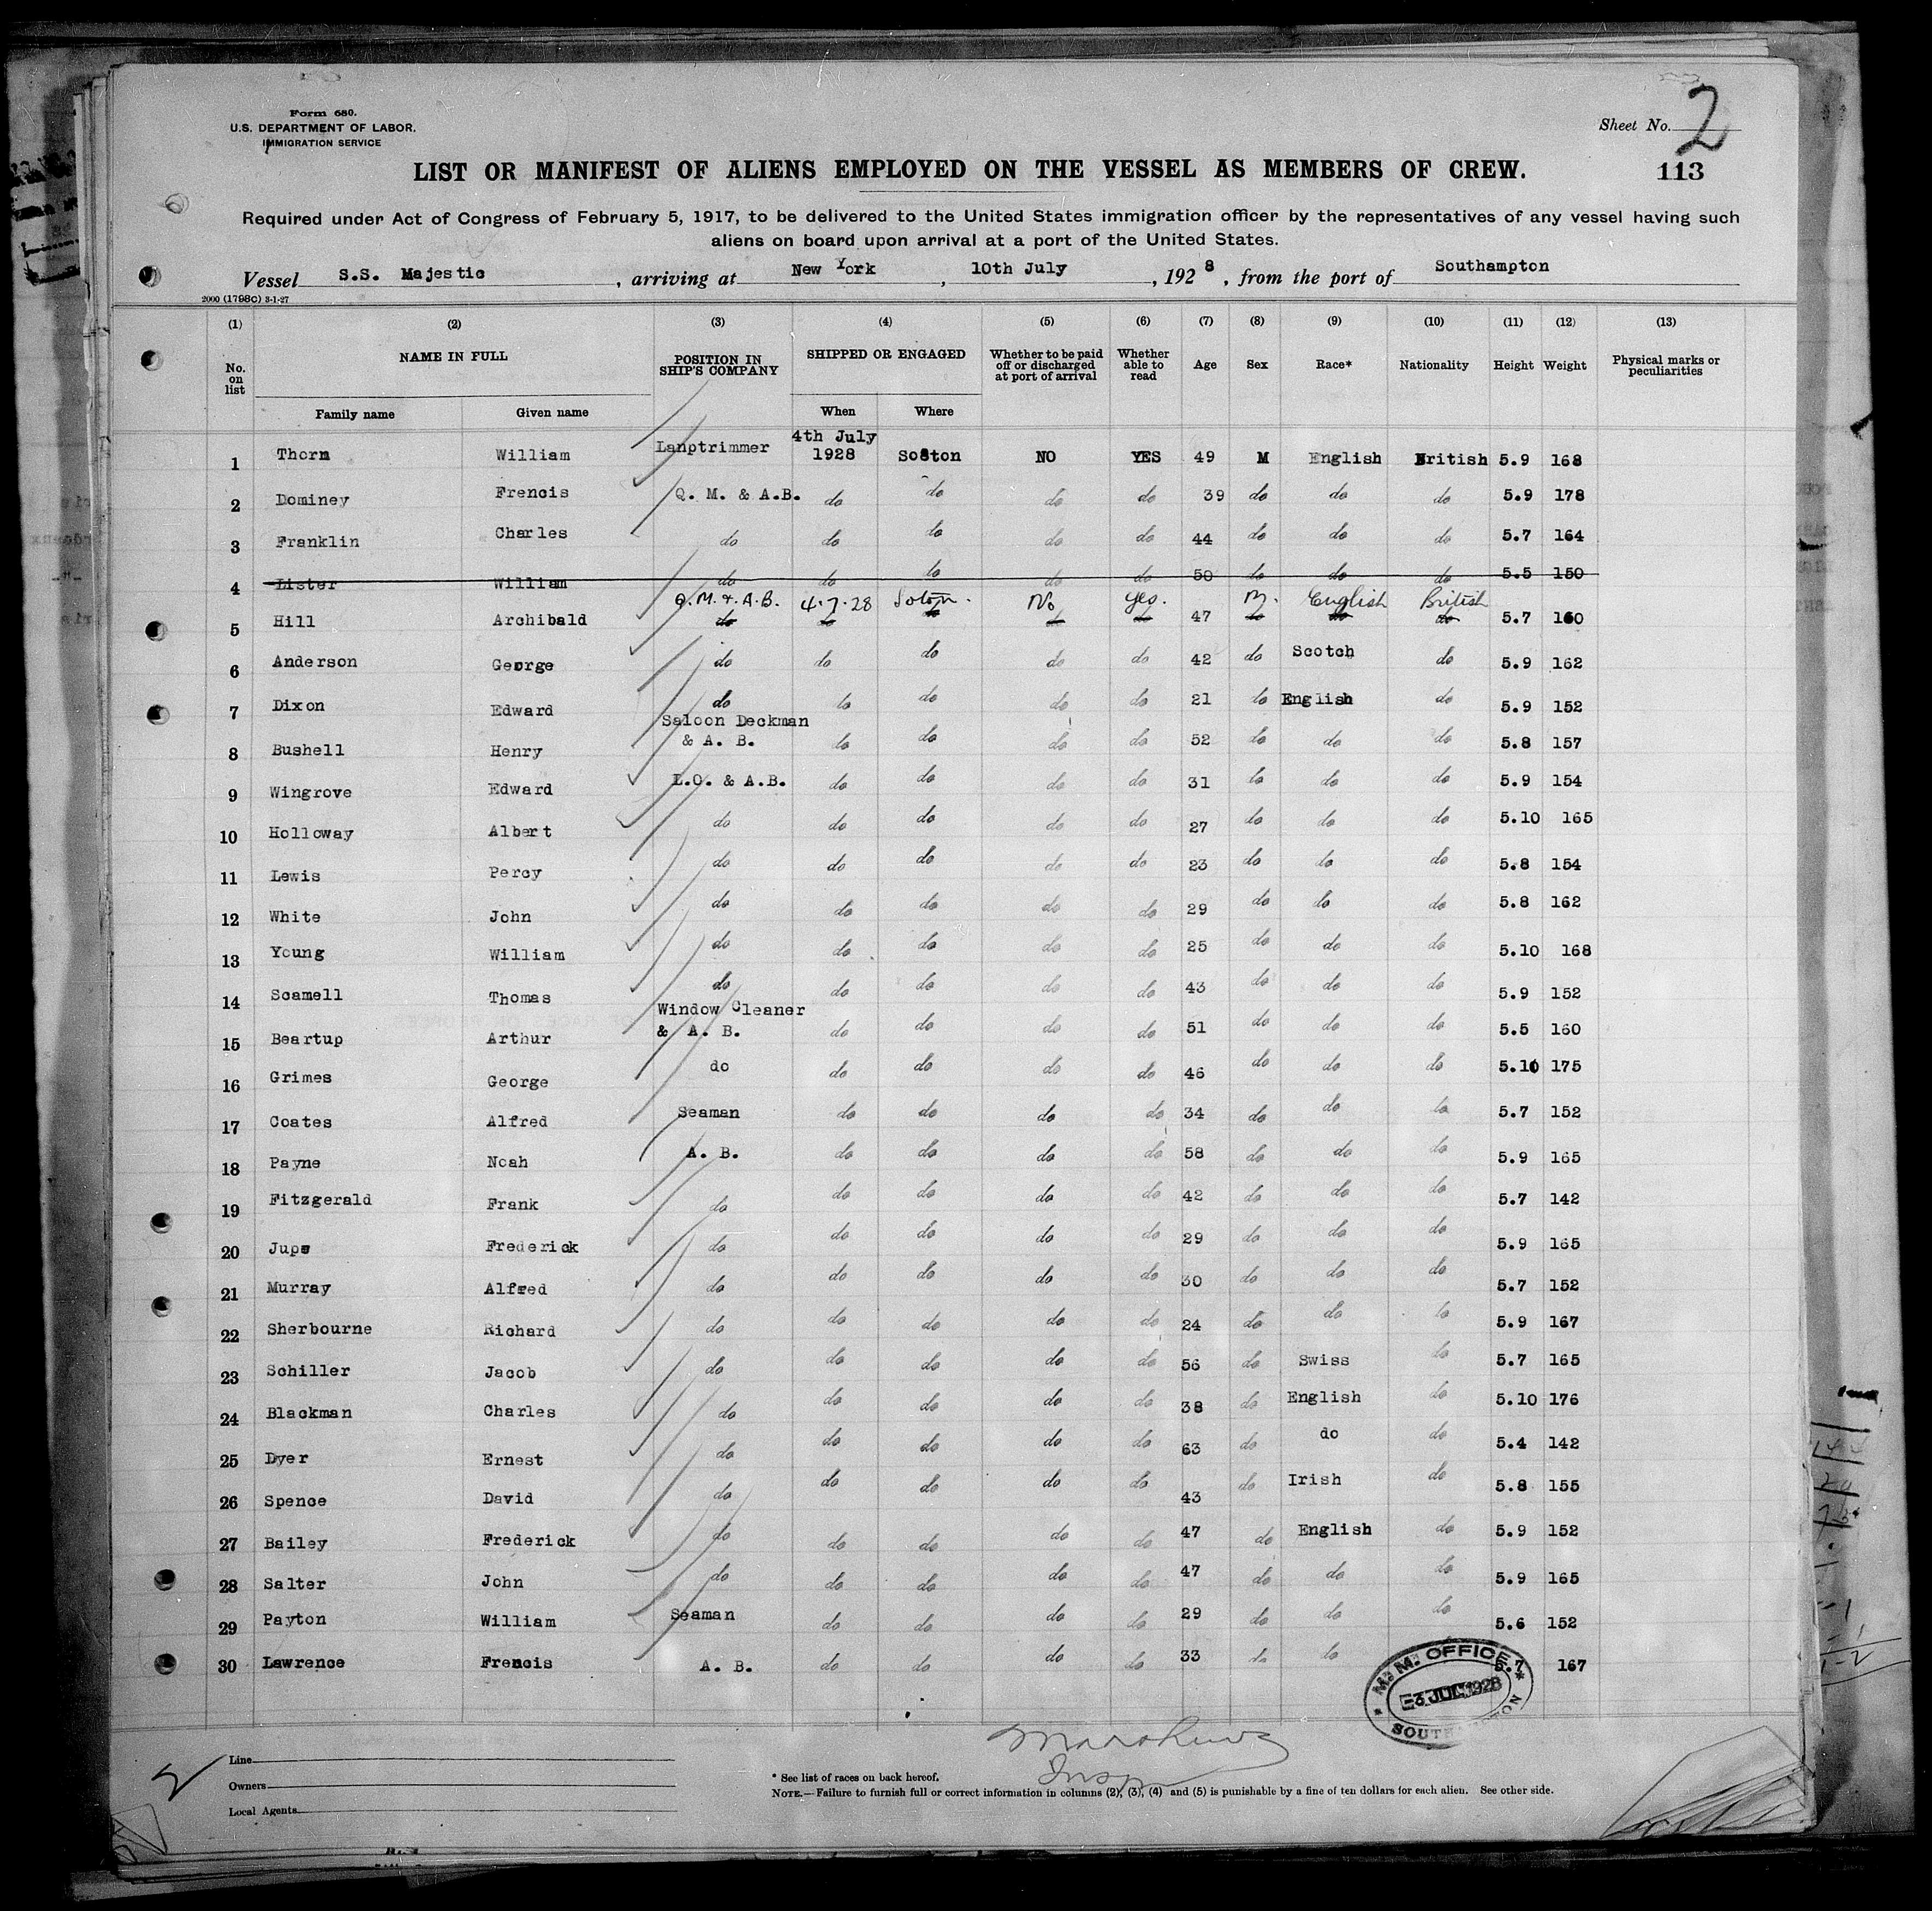 Form 680.
U.S. DEPARTMENT OF LABOR.
IMMIGRATION SERVICE
Sheet No. 2
113
LIST OR MANIFEST OF ALIENS EMPLOYED ON THE VESSEL AS MEMBERS OF CREW.
Required under Act of Congress of February 5, 1917, to be delivered to the United States immigration officer by the representatives of any vessel having such
aliens on board upon arrival at a port of the United States.
Vessel S.S. Majestic, arriving at New York, 10th July, 1928, from the port of Southampton
2000 (1798C) 3-1-27
(1) (2) (3) (4) (5) (6) (7) (8) (9) (10) (11) (12) (13)
No. on list NAME IN FULL POSITION IN SHIP'S COMPANY SHIPPED OR ENGAGED Whether to be paid off or discharged at port of arrival Whether able to read Age Sex Race* Nationality Height Weight Physical marks or peculiarities
Family name Given name When Where
1 Thorn William Lamptrimmer 4th July 1928 Soston NO YES 49 M English British 5.9 168
2 Dominey Frencis Q. M. & A.B. do do do do 39 do do do 5.9 178
3 Franklin Charles do do do do do 44 do do do 5.7 164
4 Lister William do do do do do 50 do do do 5.5 150
5 Hill Archibald Q.M. & A.B. 4.7.28 Soton. No Yes. 47 M. English British 5.7 160
6 Anderson George do do do do do 42 do Scotch do 5.9 162
7 Dixon Edward do do do do do 21 do English do 5.9 152
8 Bushell Henry Saloon Deckman & A. B. do do do do 52 do do do 5.8 157
9 Wingrove Edward L.O. & A.B. do do do do 31 do do do 5.9 154
10 Holloway Albert do do do do do 27 do do do 5.10 165
11 Lewis Percy do do do do do 23 do do do 5.8 154
12 White John do do do do do 29 do do do 5.8 162
13 Young William do do do do do 25 do do do 5.10 168
14 Scamell Thomas do do do do do 43 do do do 5.9 152
15 Beartup Arthur Window Cleaner & A. B. do do do do 51 do do do 5.5 160
16 Grimes George do do do do do 46 do do do 5.10 175
17 Coates Alfred Seaman do do do do 34 do do do 5.7 152
18 Payne Noah A. B. do do do do 58 do do do 5.9 165
19 Fitzgerald Frank do do do do do 42 do do do 5.7 142
20 Jupe Frederick do do do do do 29 do do do 5.9 165
21 Murray Alfred do do do do do 30 do do do 5.7 152
22 Sherbourne Richard do do do do do 24 do do do 5.9 167
23 Schiller Jacob do do do do do 56 do Swiss do 5.7 165
24 Blackman Charles do do do do do 38 do English do 5.10 176
25 Dyer Ernest do do do do do 63 do do do 5.4 142
26 Spence David do do do do do 43 do Irish do 5.8 155
27 Bailey Frederick do do do do do 47 do English do 5.9 152
28 Salter John do do do do do 47 do do do 5.9 165
29 Payton William Seaman do do do do 29 do do do 5.6 152
30 Lawrence Frencis A. B. do do do do 33 do do 5.7 167
* M. M. OFFICE *
3 JUL 1928
SOUTHAMPTON
2
Line
Owners
Local Agents
* See list of races on back hereof.
NOTE.—Failure to furnish full or correct information in columns (2), (3), (4) and (5) is punishable by a fine of ten dollars for each alien. See other side.